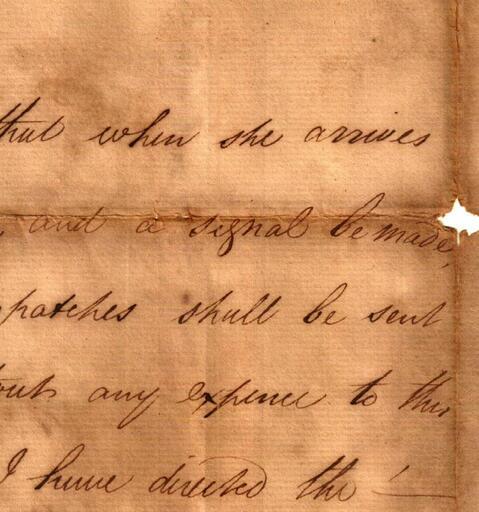 that when she arrives
, and a signal be made,
patches shall be sent
out any expence to this
I have directed the